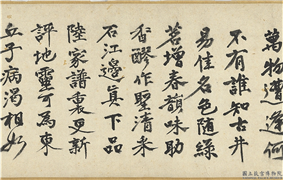 萬物遭逢何
不有誰知古井
易佳名色隨綠
茗增春韻味助
香醪作聖清来
石江邊真下品
陸家譜裏更新
評地靈可為東
丘子病渴相如
國立故宮博物院